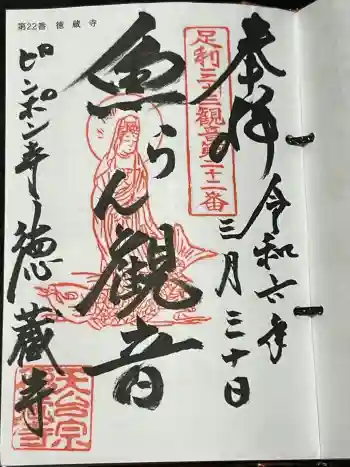 第22番 徳蔵寺
奉拝
令和六年
三月三十日
足利三十三観音第二十二番
魚らん観音
ピンポン寺 徳蔵寺
天台宗